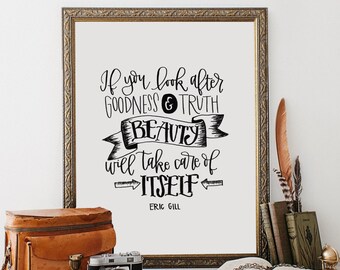 If you look after
GOODNESS & TRUTH
BEAUTY
will take care of
ITSELF
ERIC GILL